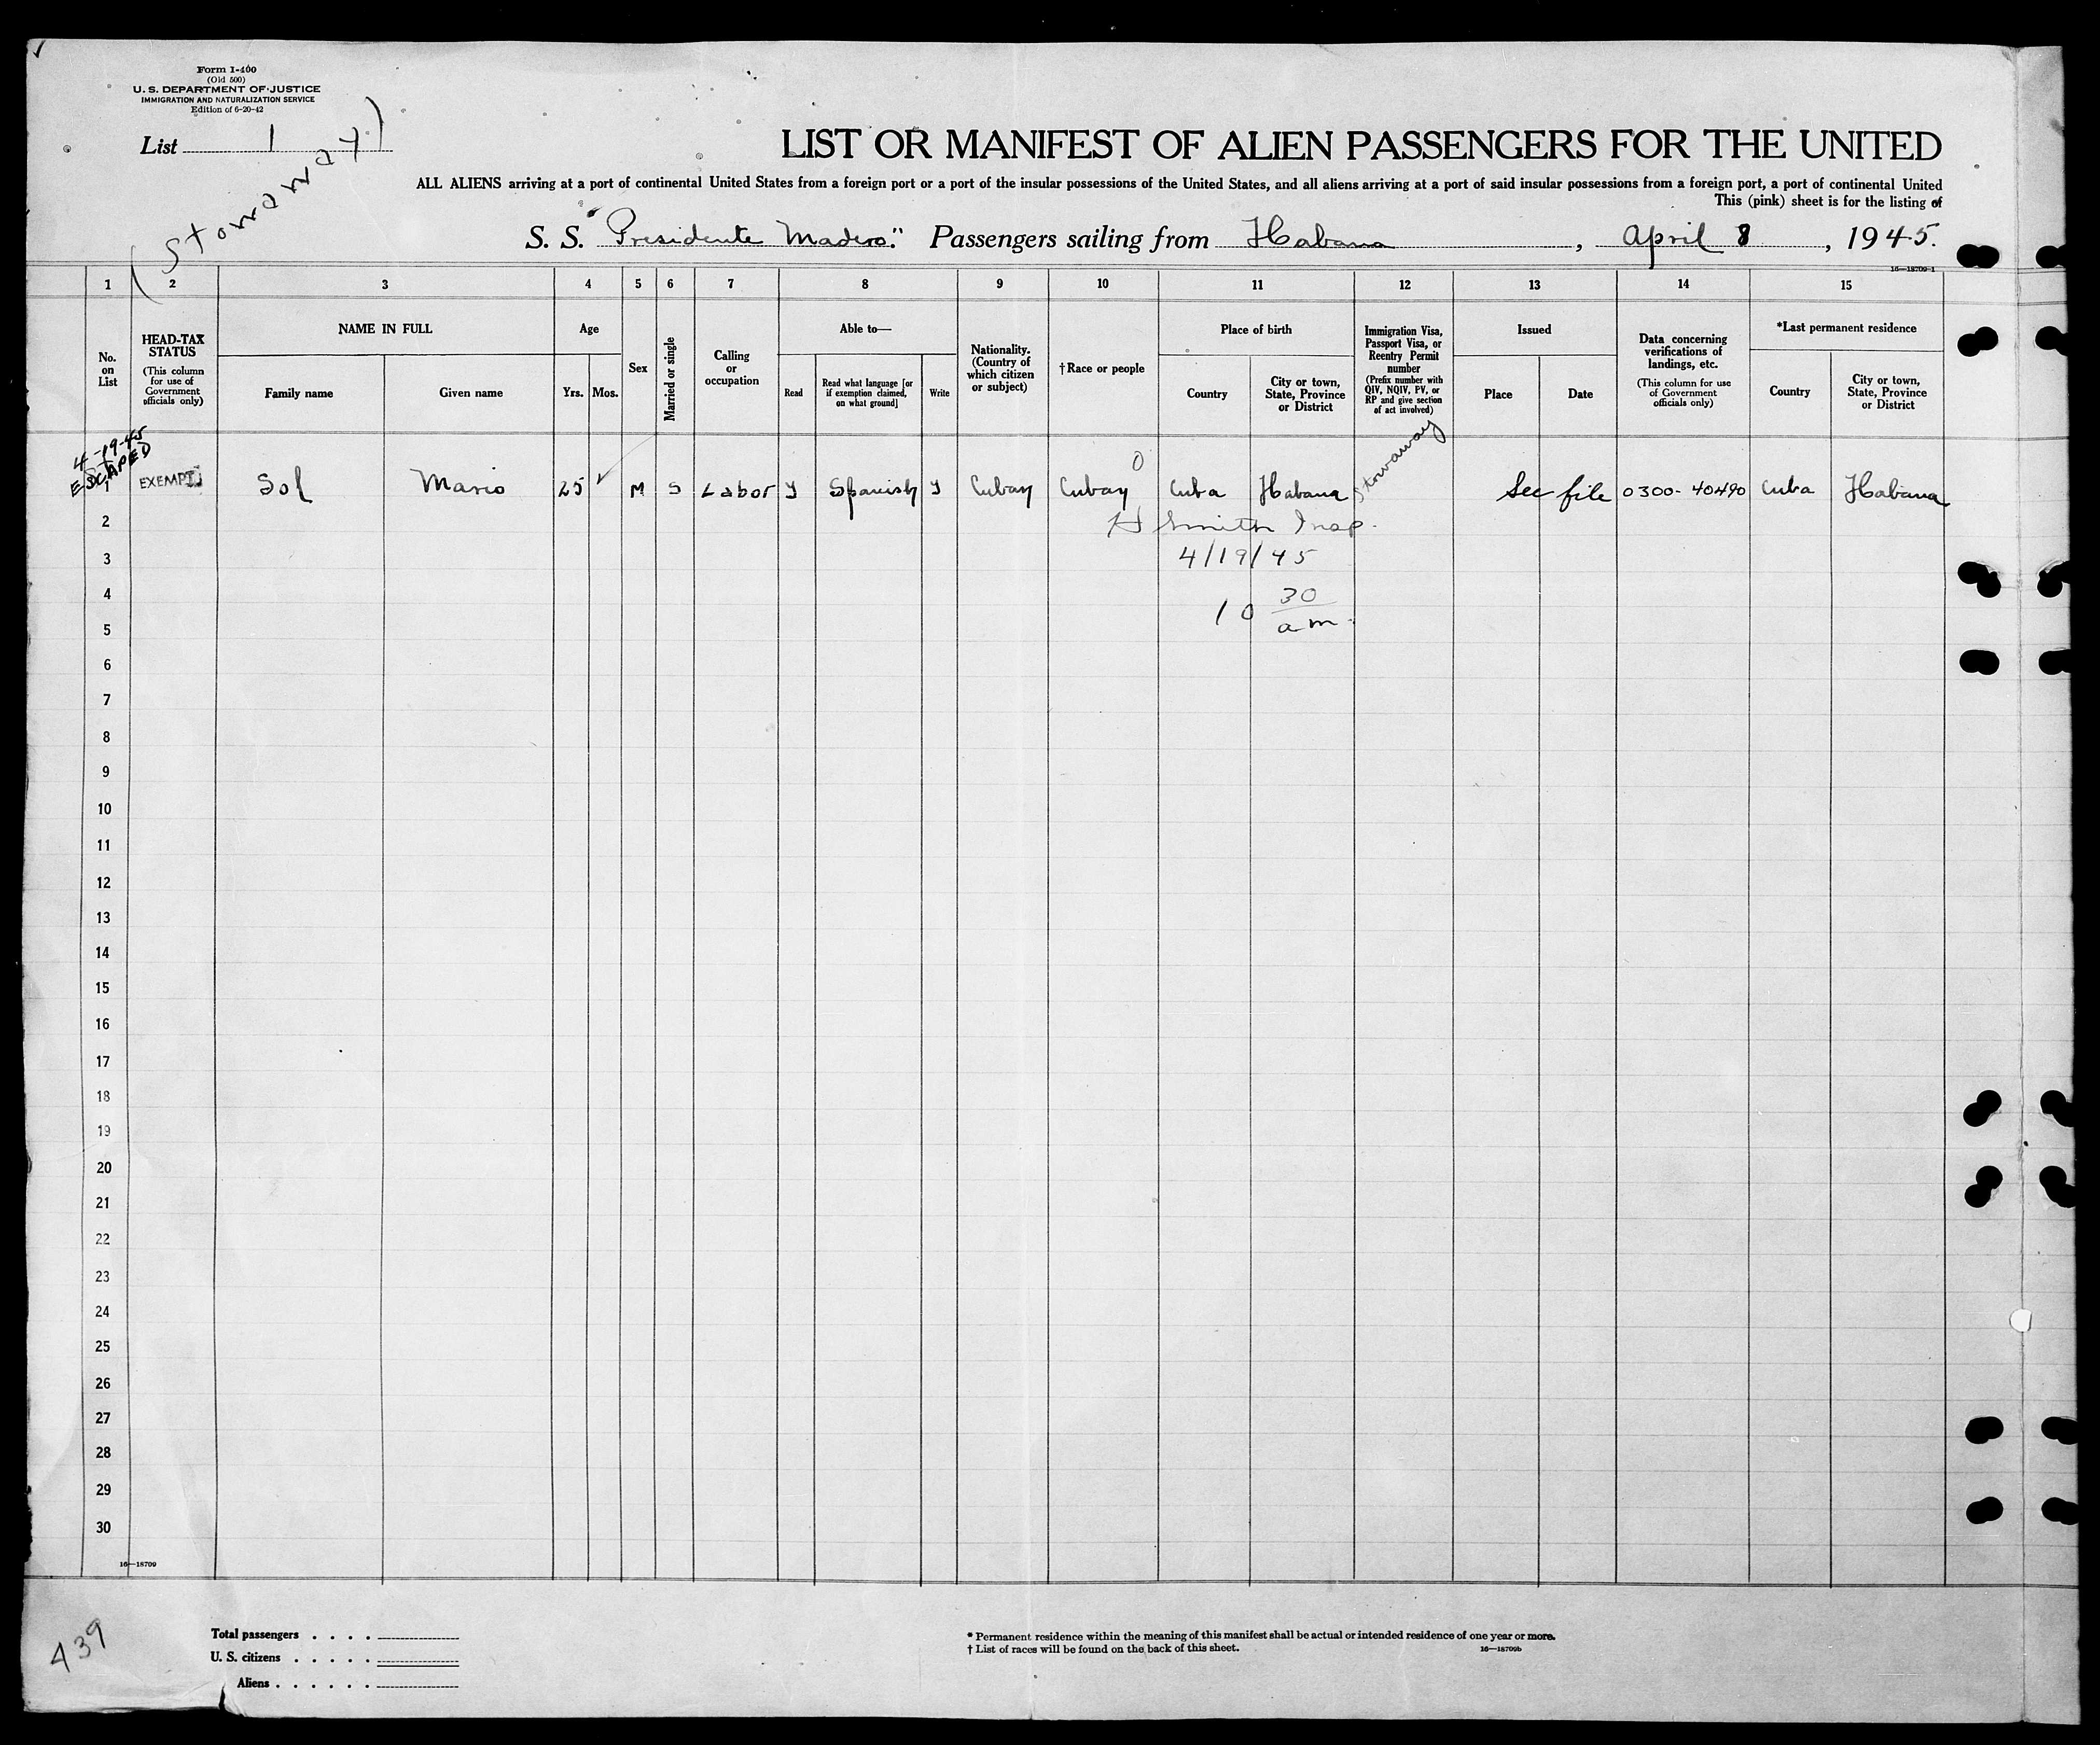 Form I-400
(Old 500)
U. S. DEPARTMENT OF JUSTICE
IMMIGRATION AND NATURALIZATION SERVICE
Edition of 6-20-42
List 1
(Stowaway)
LIST OR MANIFEST OF ALIEN PASSENGERS FOR THE UNITED
ALL ALIENS arriving at a port of continental United States from a foreign port or a port of the insular possessions of the United States, and all aliens arriving at a port of said insular possessions from a foreign port, a port of continental United
This (pink) sheet is for the listing of
S. S. "Presidente Madero." Passengers sailing from Habana, April 8, 1945.
16—18709-1
1 2 3 4 5 6 7 8 9 10 11 12 13 14 15
No. on List
HEAD-TAX STATUS
(This column for use of Government officials only)
NAME IN FULL
Family name
Given name
Age
Yrs.
Mos.
Sex
Married or single
Calling or occupation
Able to—
Read
Read what language [or if exemption claimed, on what ground]
Write
Nationality. (Country of which citizen or subject)
†Race or people
Place of birth
Country
City or town, State, Province or District
Immigration Visa, Passport Visa, or Reentry Permit number
(Prefix number with QIV, NQIV, PV, or RP and give section of act involved)
Issued
Place
Date
Data concerning verifications of landings, etc.
(This column for use of Government officials only)
*Last permanent residence
Country
City or town, State, Province or District
4-19-45
ESCAPED
1 EXEMPT Sol Mario 25 M S Labor Y Spanish Y Cuban Cuban Cuba Habana Stowaway See file 0300-40490 Cuba Habana
0
2 H Smith Insp.
3 4/19/45
4 10 30
5 am.
6
7
8
9
10
11
12
13
14
15
16
17
18
19
20
21
22
23
24
25
26
27
28
29
30
16—18709
439
Total passengers . . . .
U. S. citizens . . . . .
Aliens . . . . . .
* Permanent residence within the meaning of this manifest shall be actual or intended residence of one year or more.
† List of races will be found on the back of this sheet.
16—18709b